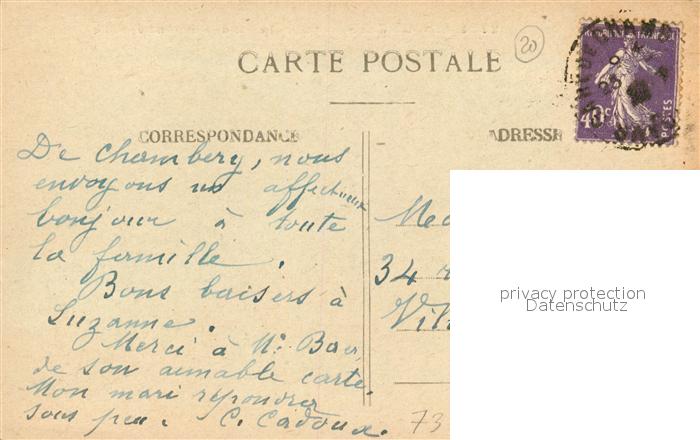 CARTE POSTALE
20
40c
POSTES
CORRESPONDANCE
ADRESSE
De Chambery, nous
envoyons un affectueux
bonjour à toute
la famille.
Bons baisers à
Suzanne.
Merci à Mr Baer,
de son aimable carte.
Mon mari répondra
sous peu. C. Cadoux.
34
73
privacy protection
Datenschutz